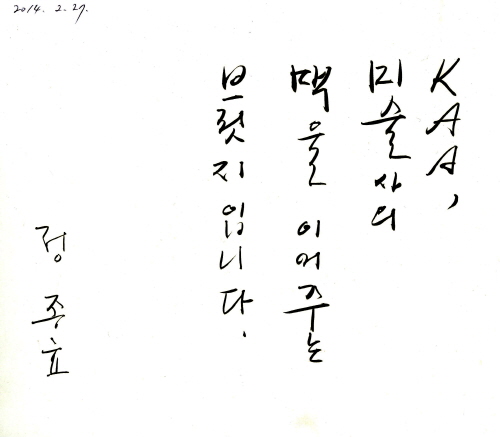 2014. 2. 27.
KAA,
미술사의
맥을 이어주는
브릿지입니다.
정종효